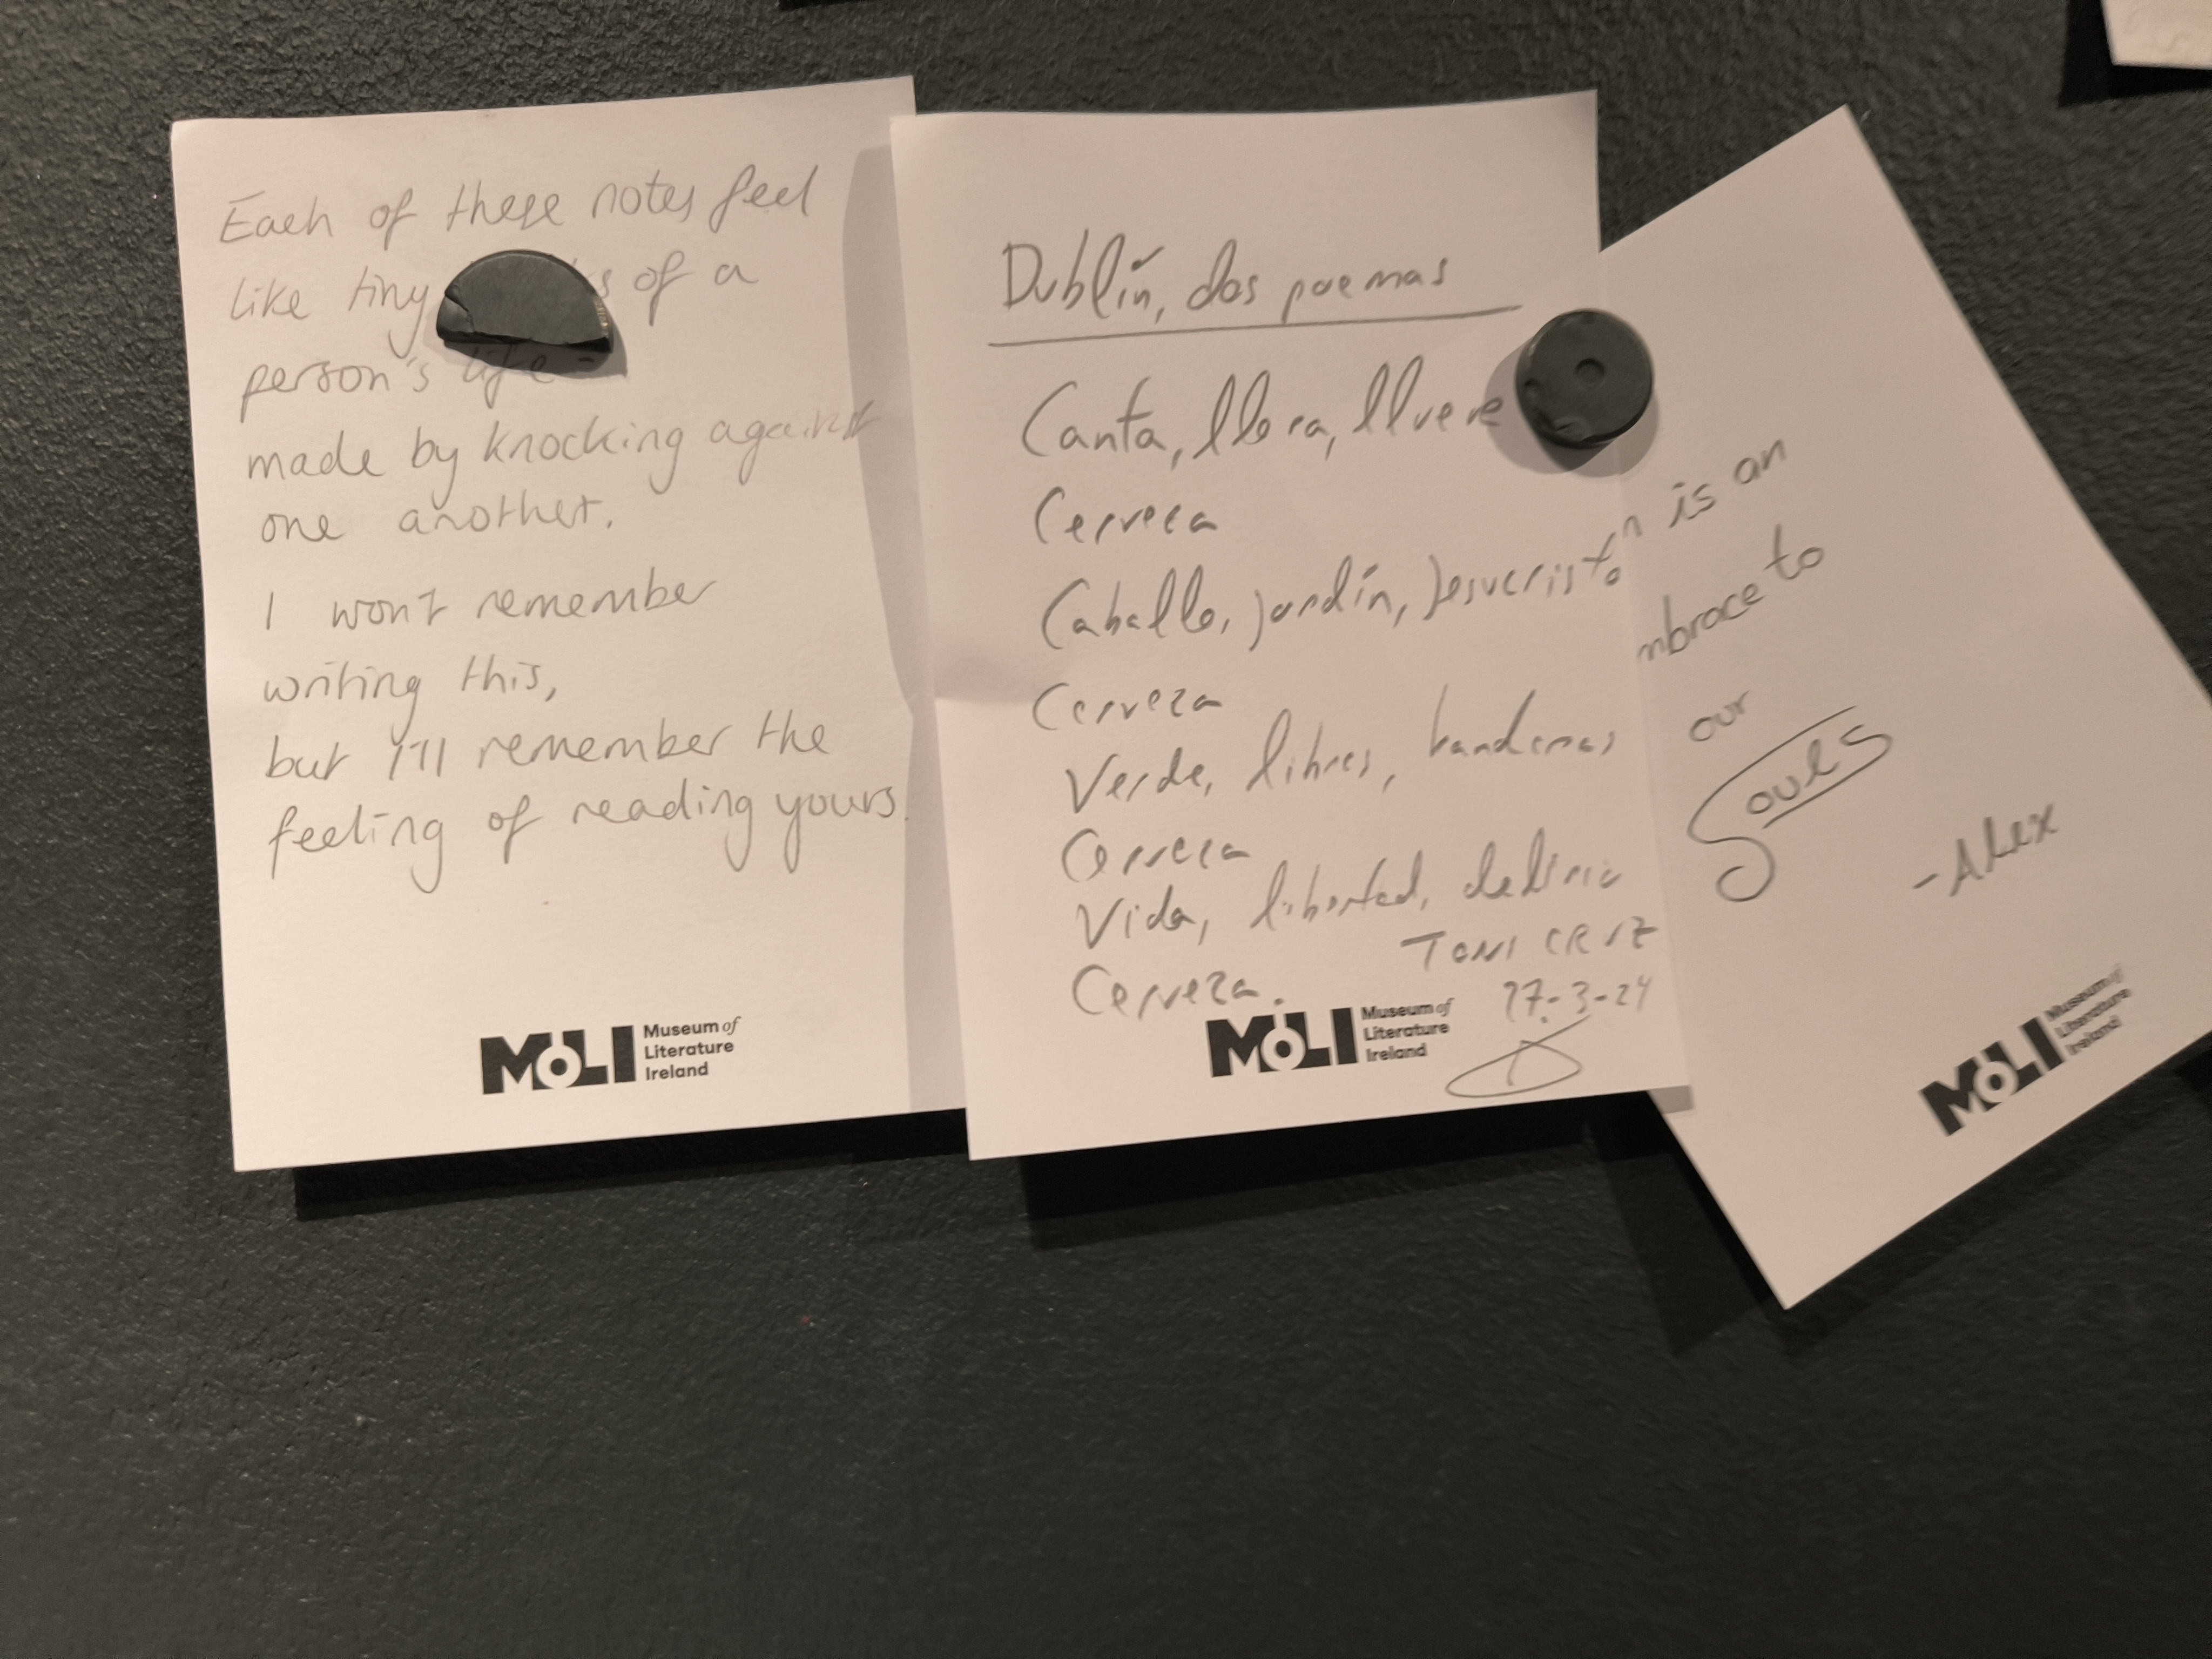 Each of these notes feel
like tiny of a
person's life -
made by knocking against
one another.
I won't remember
writing this,
but I'll remember the
feeling of reading yours.
MoLI
Museum of
Literature
Ireland
Dublín, dos poemas
Canta, llora, llueve
Cerveza
Caballo, jardín, Jesucristo
Cerveza
Verde, libres, banderas
Cerveza
Vida, libertad, delirio
Cerveza.
TONI CRUZ
27-3-24
MoLI
Museum of
Literature
Ireland
is an
to
our
Souls
-Alex
MoLI
Museum of
Literature
Ireland